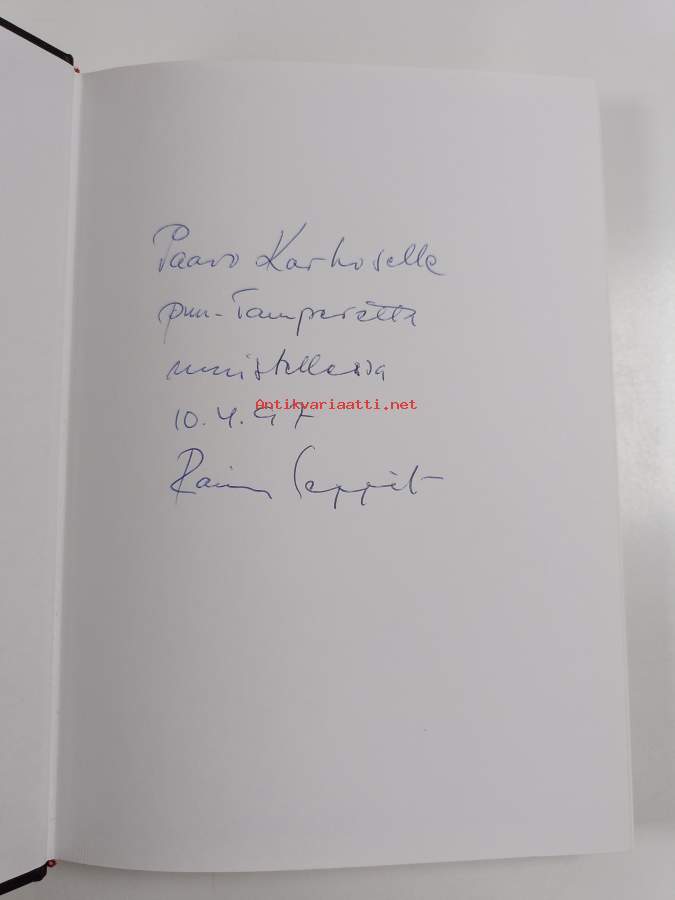 Paavo Karhoselle
puu-Tamperetta
muistellessa
Antikvariaatti.net
10.4.97
Raimo Seppälä